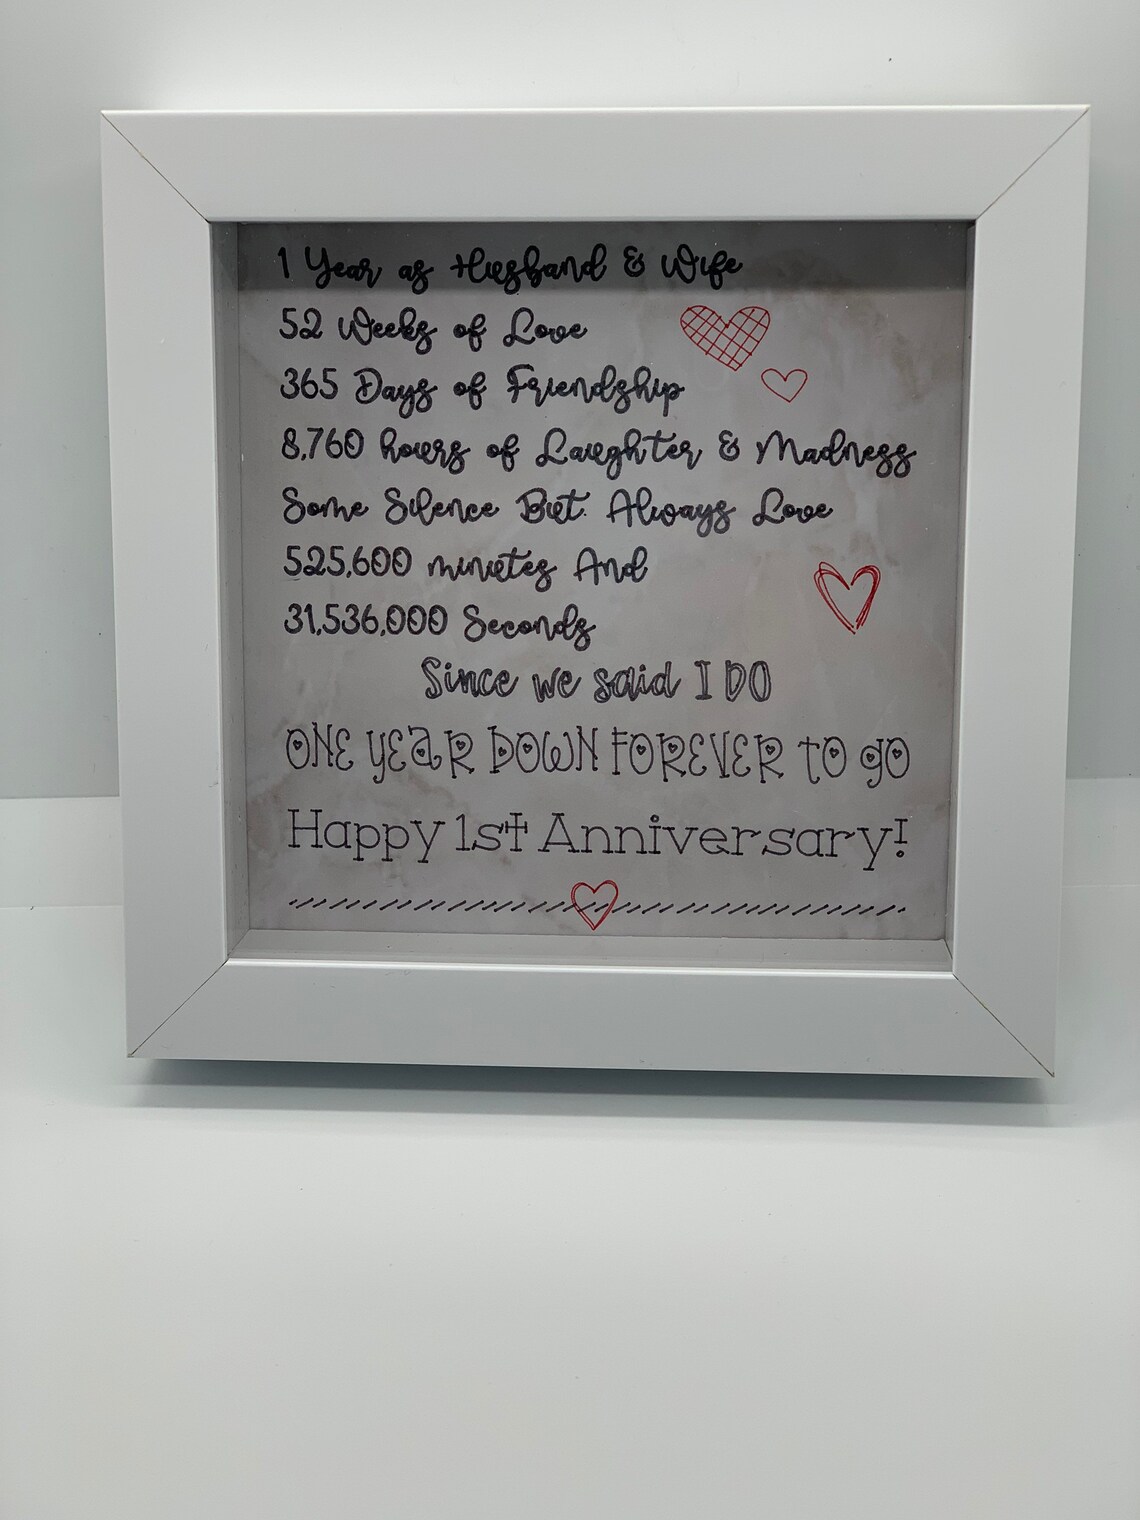 1 Year as Husband & Wife
52 Weeks of Love
365 Days of Friendship
8,760 hours of Laughter & Madness
Some Silence But Always Love
525,600 minutes And
31,536,000 Seconds
Since we said I DO
ONE YEaR DOWN FOREVER to go
Happy 1st Anniversary!